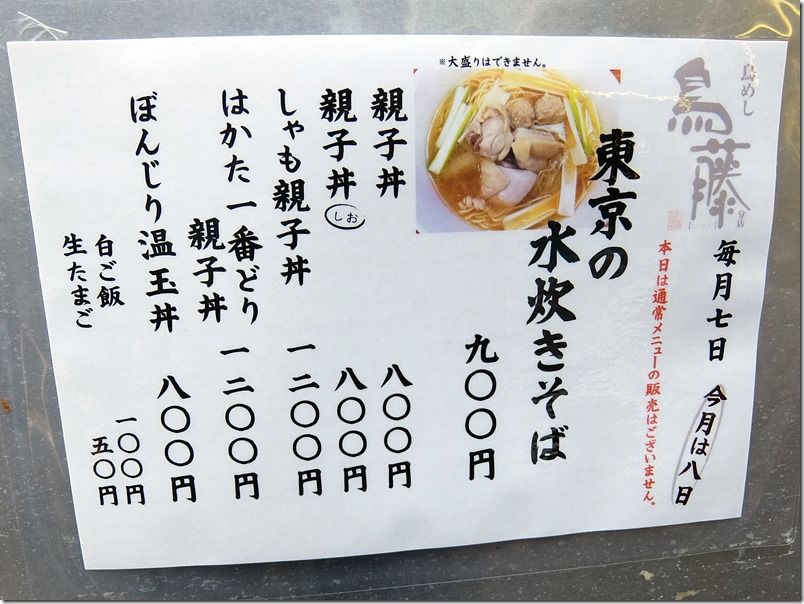 鳥めし
鳥藤
分店
毎月七日 今月は八日
本日は通常メニューの販売はございません。
※大盛りはできません。
東京の
水炊きそば
九〇〇円
親子丼 八〇〇円
親子丼 しお 八〇〇円
しゃも親子丼 一二〇〇円
はかた一番どり
親子丼 一二〇〇円
ぼんじり温玉丼 八〇〇円
白ご飯 一〇〇円
生たまご 五〇円